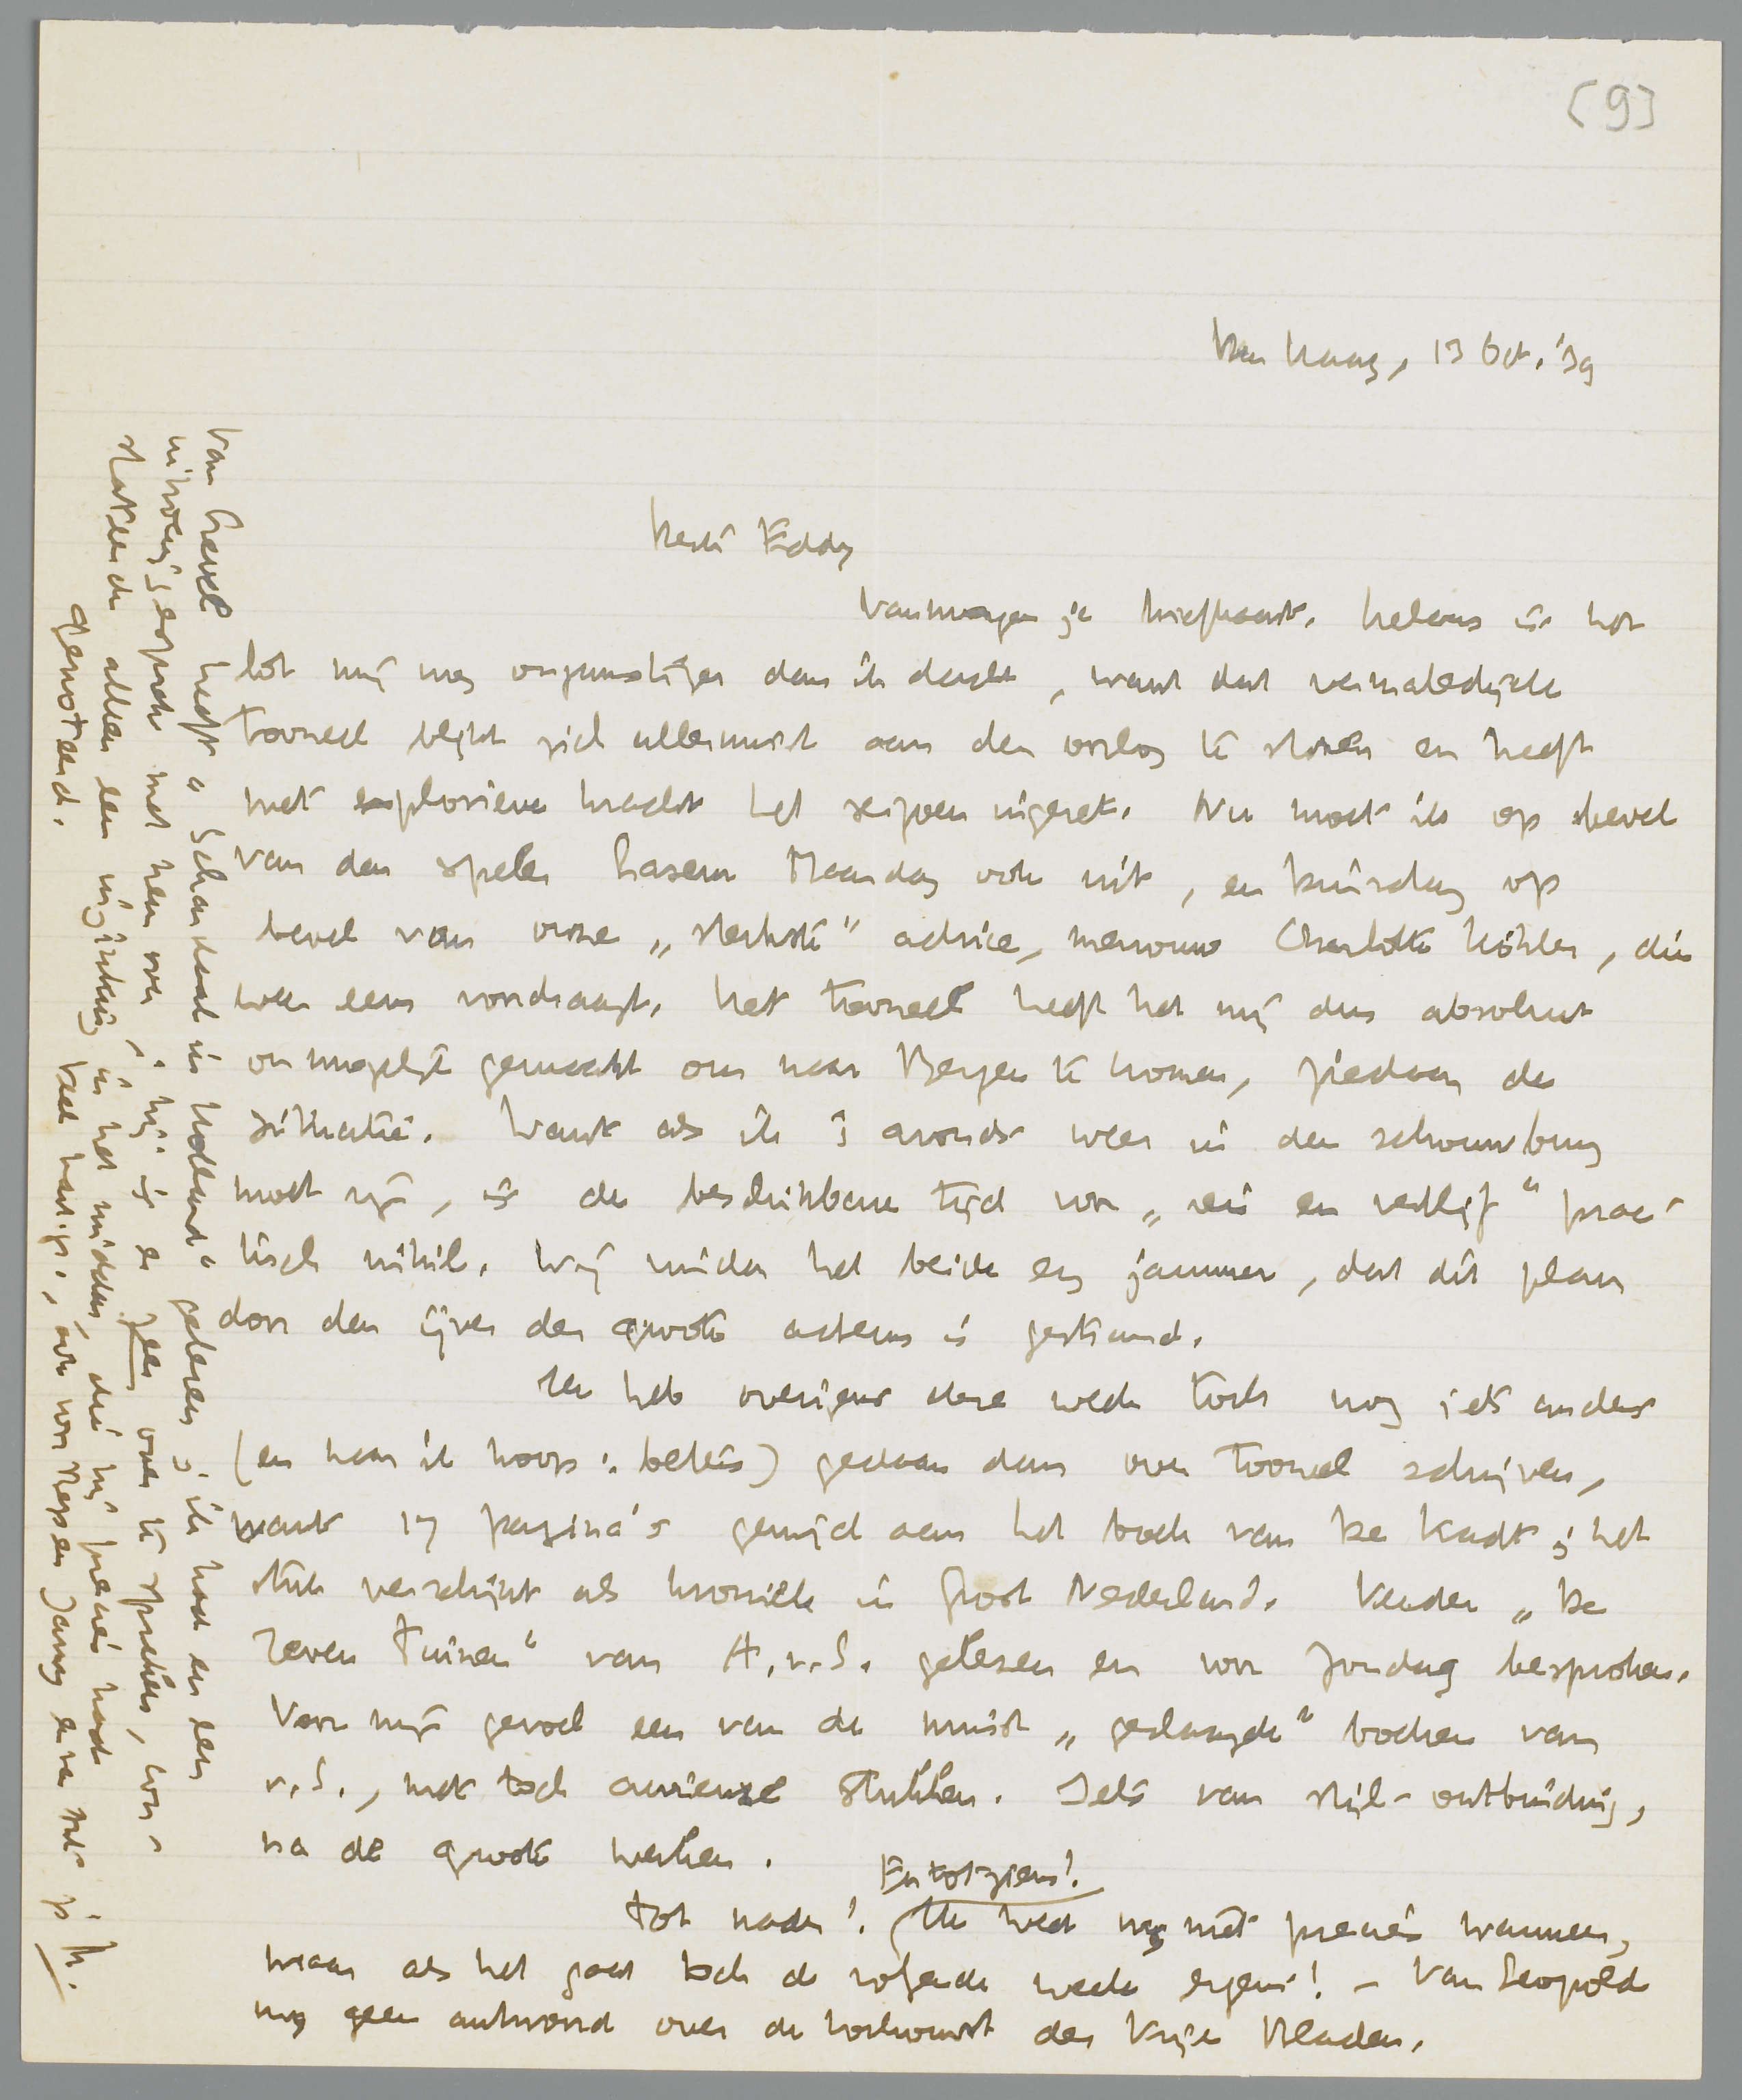 [9]
Den Haag, 13 Oct. '39
Beste Eddy
Vanmorgen je briefkaart. Helaas is het
lot mij nog ongunstiger dan ik dacht, want dat vermaledijde
tooneel blijkt zich allerminst aan den oorlog te storen en heeft
met explosieve kracht het seizoen ingezet. Nu moet ik op bevel
van den speler Laseur Maandag ook uit, en Dinsdag op
bevel van onze „sterkste” actrice, mevrouw Charlotte Köhler, die
weer eens voordraagt. Het tooneel heeft het mij dus absoluut
onmogelijk gemaakt om naar Bergen te komen, ziedaar de
situatie. Want als ik 's avonds weer in den schouwburg
moet zijn, is de beschikbare tijd voor „reis en verblijf” prac-
tisch nihil. Wij vinden het beide erg jammer, dat dit plan
door den ijver der groote acteurs is gestrand.
Ik heb overigens deze week toch nog iets anders
(en naar ik hoop: beters) gedaan dan over tooneel schrijven,
want 17 pagina's gewijd aan het boek van De Kadt; het
stuk verschijnt als kroniek in Groot Nederland. Verder „De
Zeven Tuinen” van A.v.S. gelezen en voor Zondag besproken.
Voor mijn gevoel een van de minst „geslaagde” boeken van
v.S., met toch curieuze stukken. Iets van stijl-ontbinding,
na de groote werken.
En tot ziens!
Tot nader! Ik weet nog niet precies wanneer,
maar als het gaat toch de volgende week ergens! – Van Leopold
nog geen antwoord over de toekomst der Vrije Bladen.
Van Crevel heeft „Schandaal in Holland” gelezen; ik had er een
uitvoerig gesprek met hem over; hij is er zeer over te spreken, con-
stateerde alleen een inzinking in het midden, die hij precies had
genoteerd. Veel hart. gr., ook voor Bep en Jany en van Ant je M.